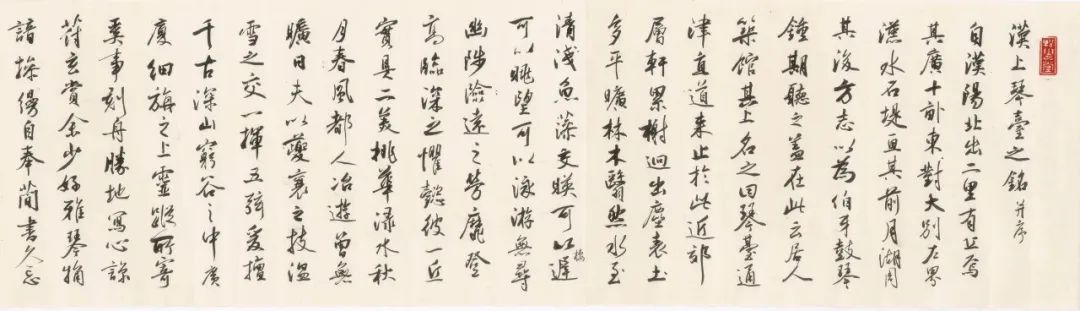 漢上琴臺之銘 并序
自漢陽北出二里有丘焉
其廣十畝東對大別左界
漢水石堤亘其前月湖周
其後方志以為伯牙鼓琴
鍾期聽之蓋在此云居人
築館其上名之曰琴臺通
津直道來止於此近郊
層軒累榭迥出塵表土
多平曠林木翳然水至
清淺魚藻交映可以棲遲
可以眺望可以泳游無尋
幽陟險遠之勞靡登
高臨深之懼懿彼一丘
實具二美桃華淥水秋
月春風都人冶遊曾無
曠日夫以夔襄之技溫
雪之交一揮五弦爰擅
千古深山窮谷之中廣
廈細旃之上靈蹤所寄
奚事刻舟勝地寫心諒
符玄賞余少好雅琴觕
諳操縵自奉簡書久忘